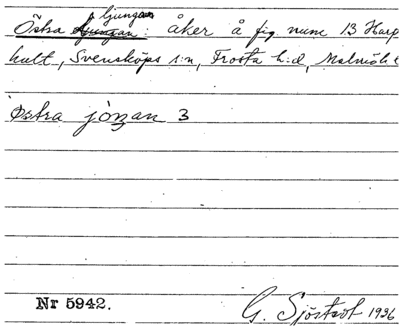 ljungan
Östra ljungan: åker å fig. num 13 Harp
hult, Svensköps s:n, Frosta h:d, Malmöh. l
Østra jo͡ŋan 3
Nr 5942.
G. Sjöstrot 1936